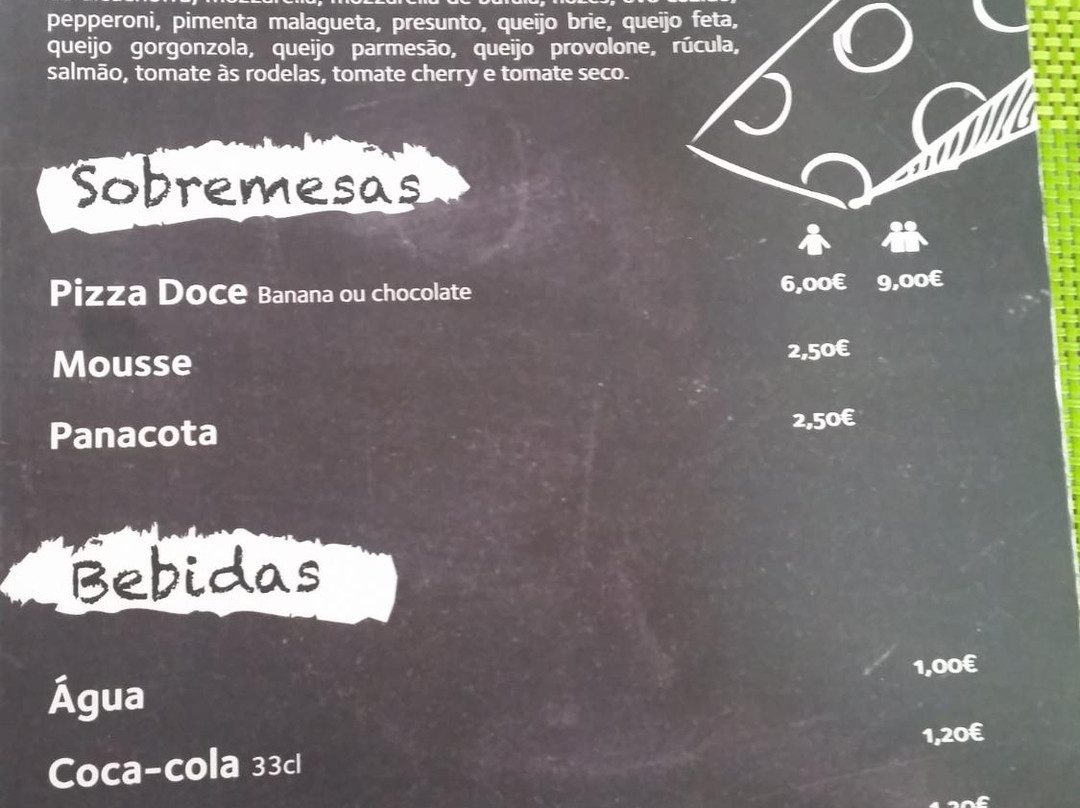 mozzarella, mozzarella de búfala, nozes, ovo cozido,
pepperoni, pimenta malagueta, presunto, queijo brie, queijo feta,
queijo gorgonzola, queijo parmesão, queijo provolone, rúcula,
salmão, tomate às rodelas, tomate cherry e tomate seco.
Sobremesas
Pizza Doce Banana ou chocolate 6,00€ 9,00€
Mousse 2,50€
Panacota 2,50€
Bebidas
Água 1,00€
Coca-cola 33cl 1,20€